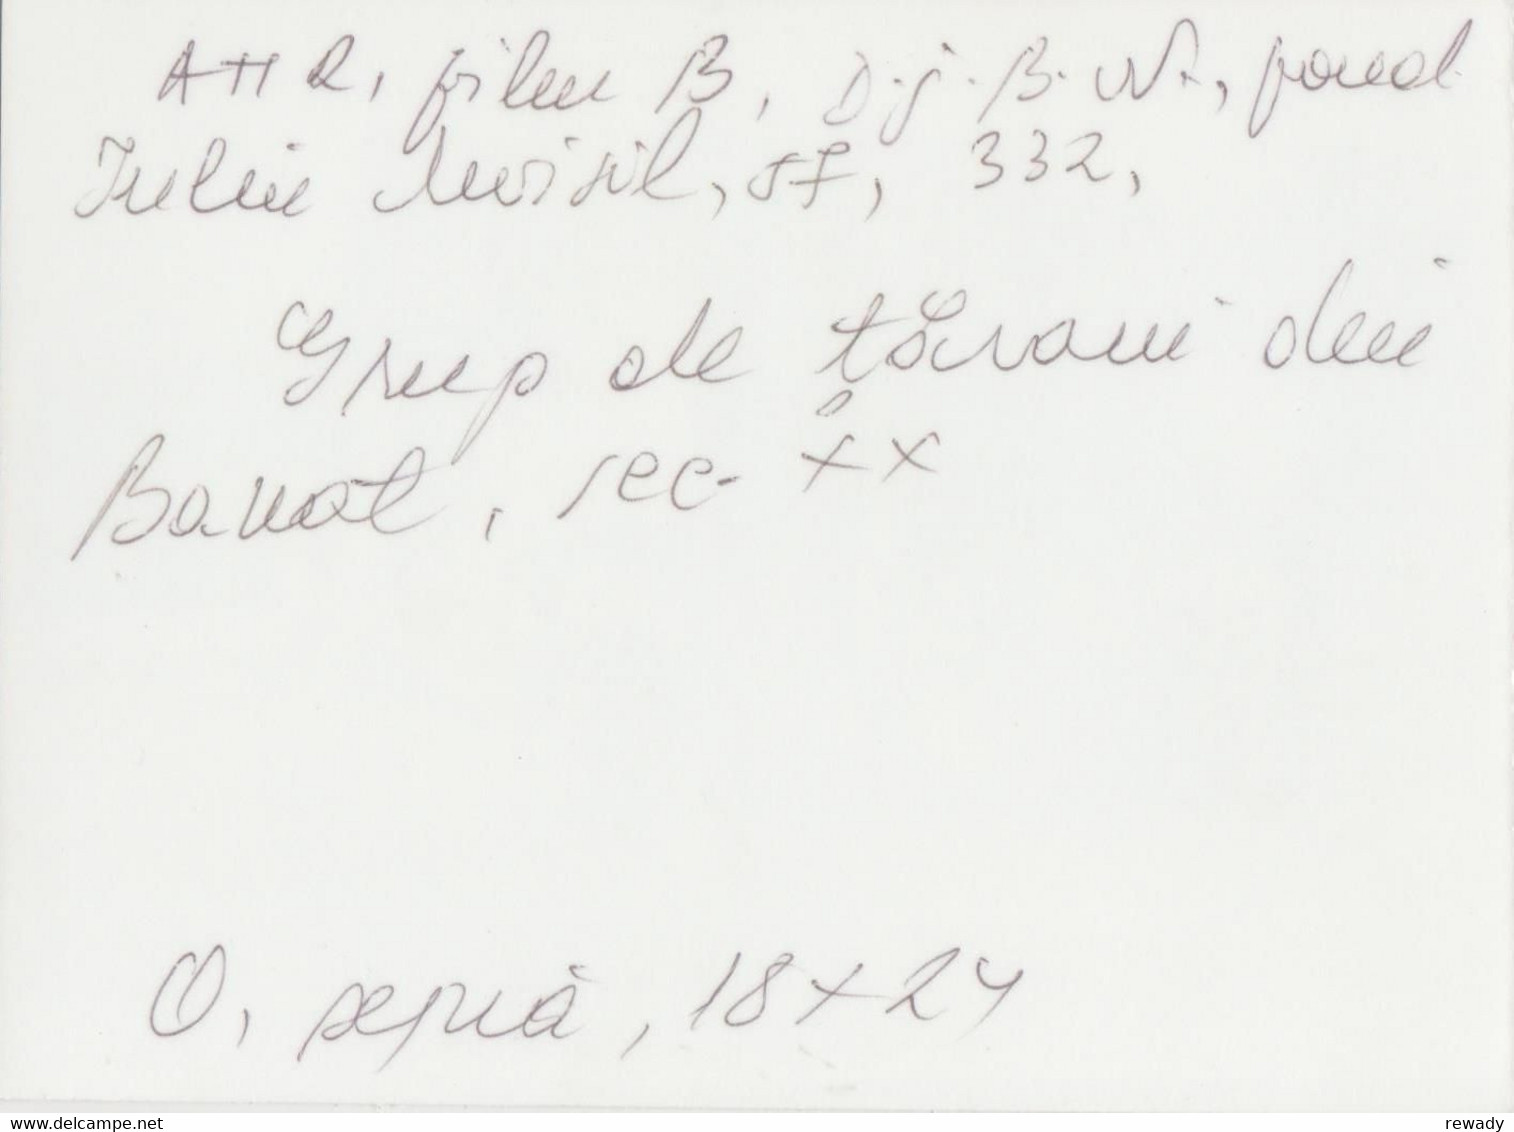 ANR, filme B, D.j. B. N., fond
Iuliu Moisil, sf, 332,
Grup de țărani din
Banat, sec. XX
O, sepia, 18x24
www.delcampe.net
rewady